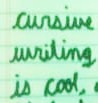 cursive
writing
is cool,